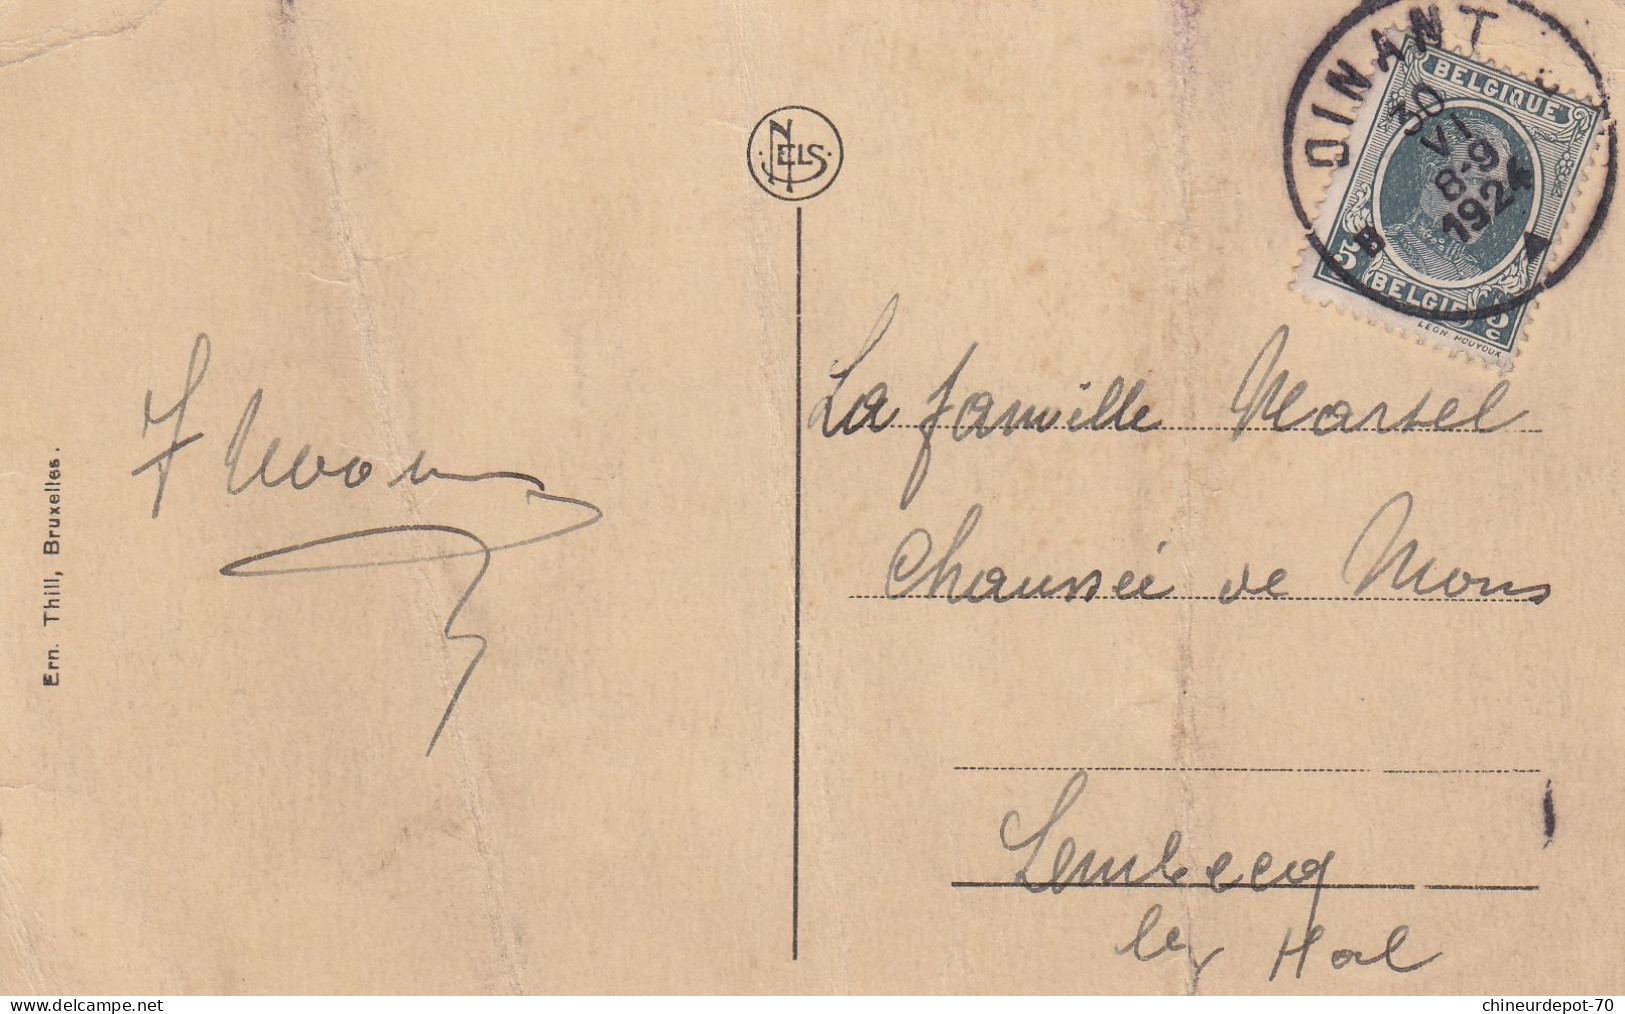 DINANT
30
VI
8-9
1924
B A
BELGIQUE
5 BELGIË 5c
LEON HOUYOUX
NELS
La famille Martel
Chaussée de Mons
Lembecq
lez Hal
Ern. Thill, Bruxelles.
delcampe.net
chineurdepot-70